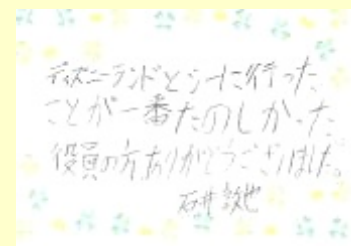 ディズニーランドとシーに行った
ことが一番たのしかった
役員の方ありがとうございました。
石井